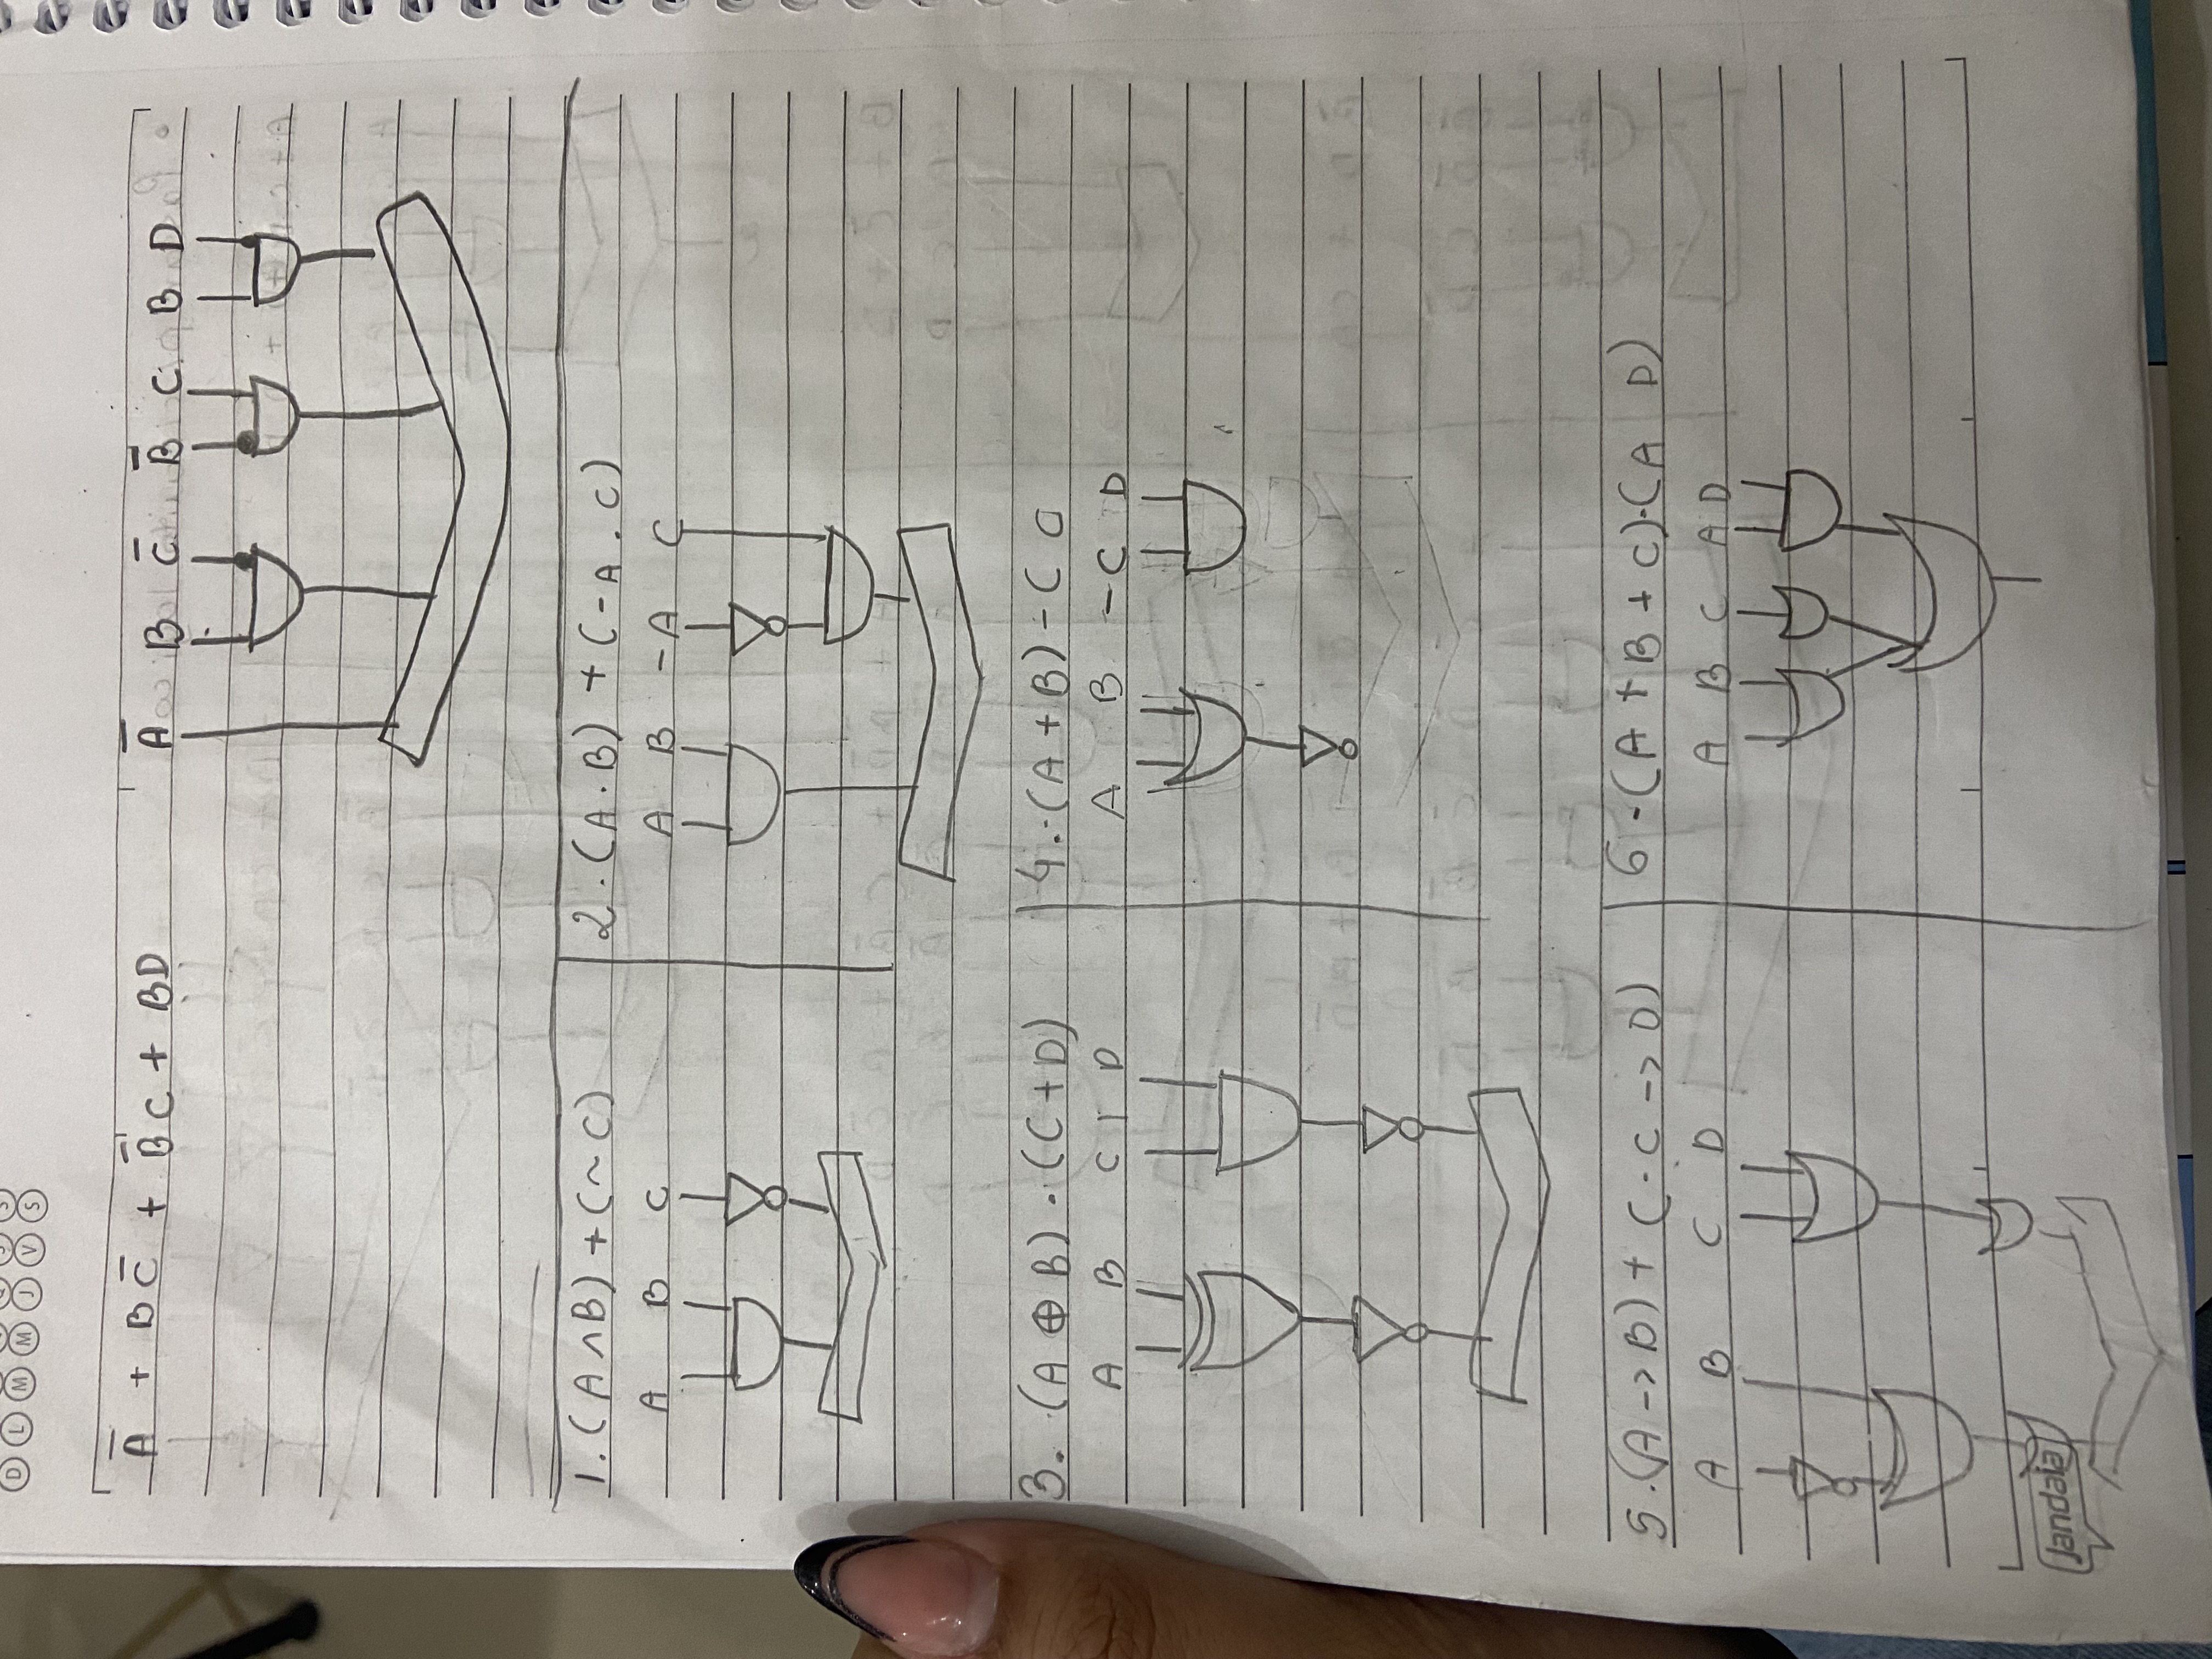 D L M M J V S
A̅ + B C̅ + B̅ C + B D
A̅ B C̅ B̅ C B D
1. (A ∧ B) + (~ C)
A B C
2. (A . B) + (- A . C)
A B - A C
3. (A ⊕ B) . (C + D)
A B C | D
4. - (A + B) - C D
A B - C D
5. (A -> B) + (- C -> D)
A B C D
6 - (A + B + C) . (A D)
A B C A D
Jandaia